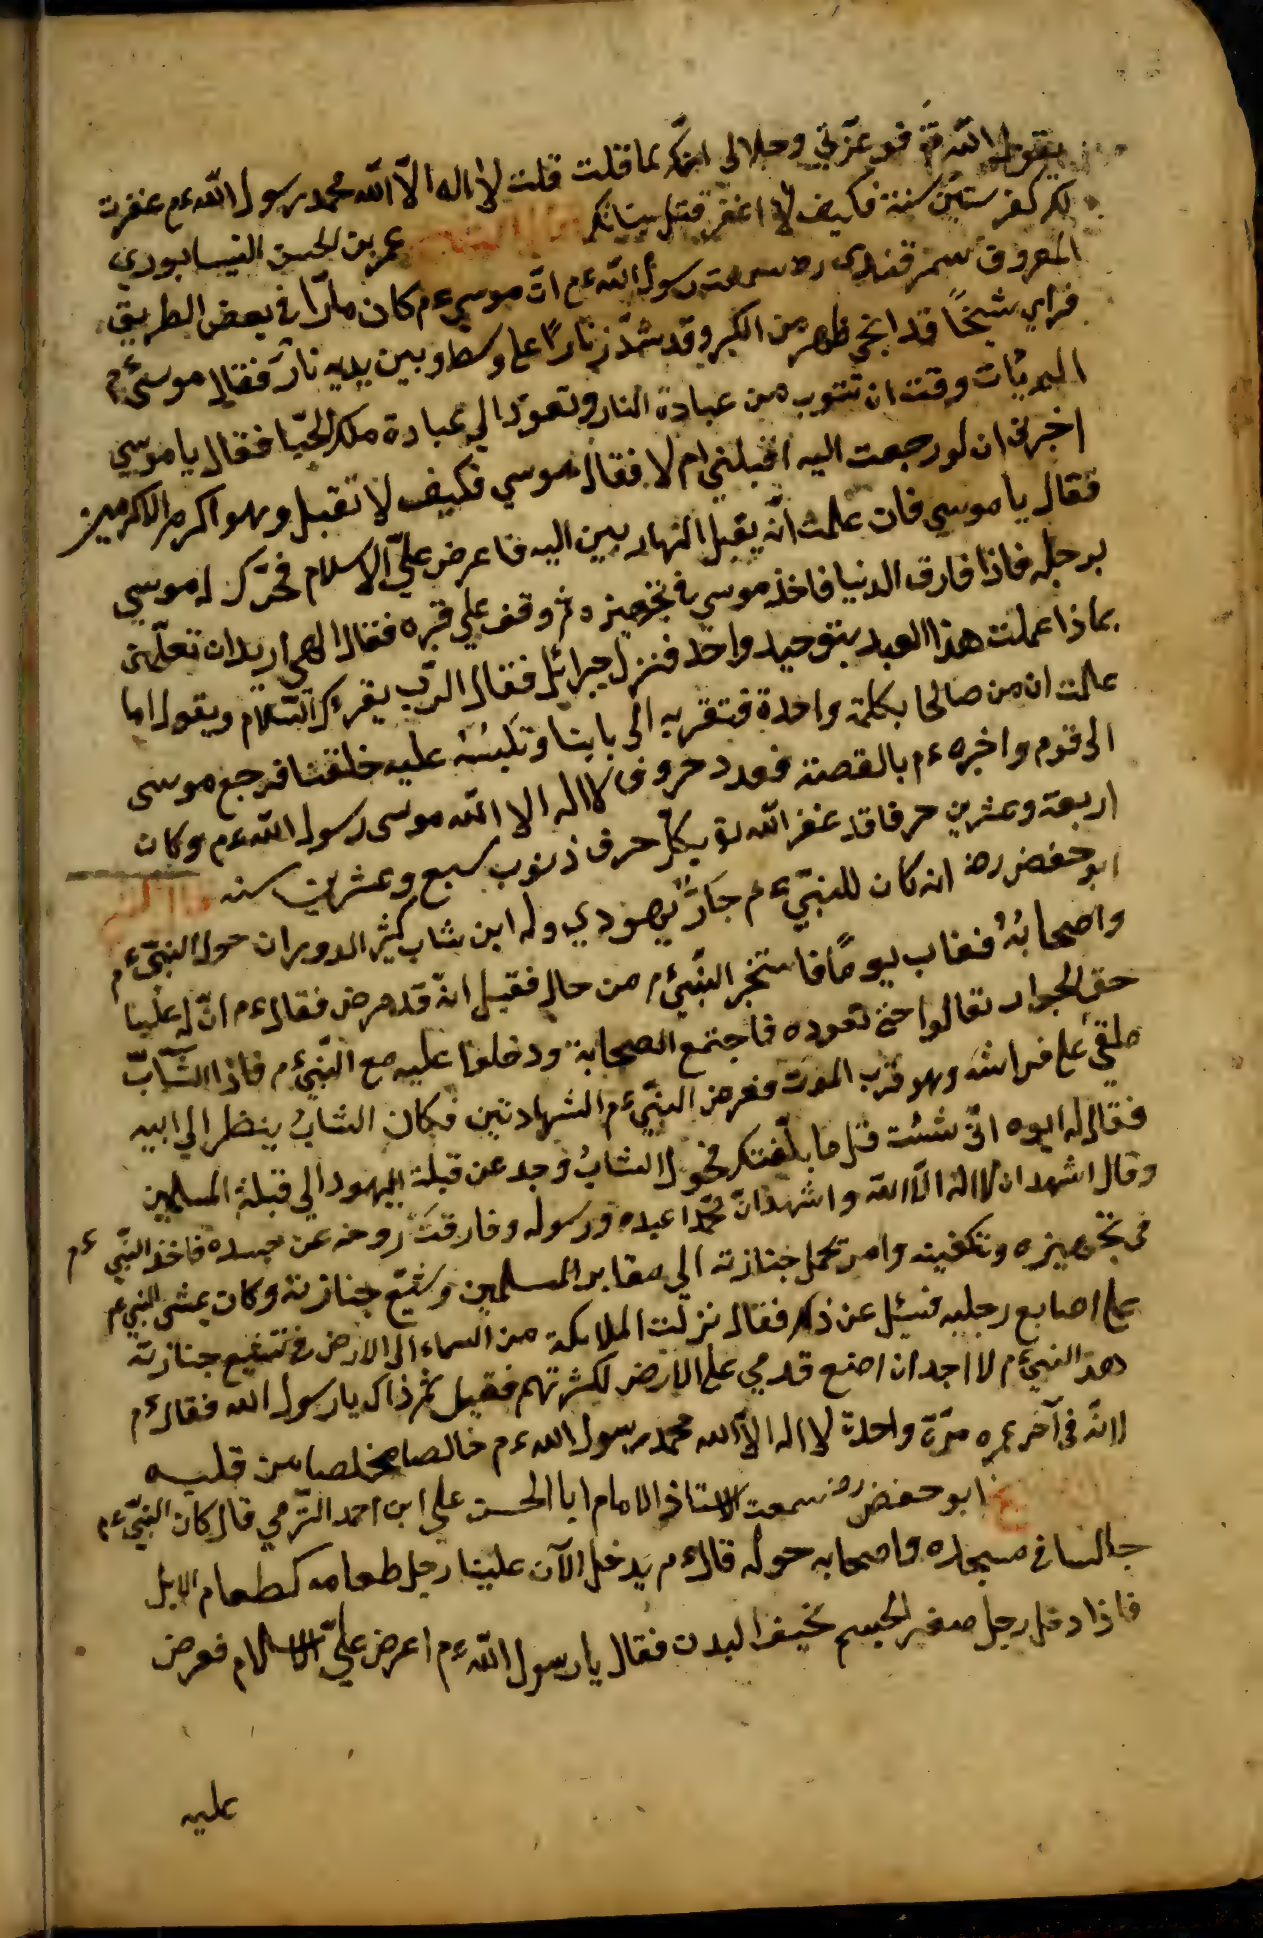 يقول الله تع فوعزتي وجلالي انك لما قلت قلت لا اله الا الله محمد رسول الله ءم غفرت
لك كفر ستين سنة فكيف لا اغفر عمر بن الحسن النيسابوري
المعروف سمرقندى رح سمعت رسول الله ءم ان موسي ءم كان مارّا في بعض الطريق
فراي شيخًا قد انحني ظهره من الكبر وقد شدّ زنارًا علي وسطه وبين يديه نارٌ فقال موسيءم
ان تتوب من عبادة النار وتعود الي عبادة ملك الجبار فقال يا موسي
اخبرنى ان لو رجعت اليه اقبلني ام لا فقال موسي فكيف لا تقبل وهو اكرم الاكرمين
فقال يا موسي فان علمت انّه يقبل اليه فاعرض عليّ الاسلام فحرّك موسي
برجله فاذا فارق الدنيا فاخذ موسي في تجهيزه ثم وقف علي قبره فقال الهي اريد ان تعلّمنى
بماذا عملت هذا العبد بتوحيد واحد فنزل جبرائل فقال الرّب يقرءك السّلام ويقول اما
علمت ان من صالحنا بكلمة واحدة فتقربه الى بابنا وتلبسُه عليه خلقتنا فرجع موسى
الى قوم واخبره ءم بالقصة فعدد حروف لا اله الا الله موسى رسول الله ءم وكان
اربعة وعشرين حرفا قد غفر الله تع بكل حرف ذنوب سبع وعشرين سنه
ابو حفص رض انه كان للنبيّ ءم جارٌ يهودي وله ابن شاب كثير الدوران حول النبيّ ءم
واصحابهُ فغاب يومًا فاستخبر النّبيّ ءم من حاله فقيل انه قد مرض فقال ءم انّ له علينا
حق الجوار تعالوا حتى نعوده فاجتمع الصحابة ودخلوا عليه مع النّبيّ ءم فاذا الشّابّ
ملقي علي فراشه وهو قرب الموت فعرض النبيّ ءم الشهادتين فكان الشابُ ينظر الي ابيه
فقال له ابوه انّ شئت قل ما بلّغتك فحول الشابُ وجه عن قبلة اليهود الي قبلة المسلمين
وقال اشهد ان لا اله الّا الله واشهد انّ محمّدا عبده ورسوله وفارقت روحه عن جسده فاخذ النّبي ءم
في تجهيزه وتكفينه وامر بحمل جنازته الي مقابر المسلمين وشيّع جنازته وكان يمشي النبي ءم
علي اصابع رجليه فسئل عن ذلك فقال نزلت الملائكة من السماء الى الارض في تشييع جنازته
هذ النبيءم لا اجد ان اضع قدمي علي الارض لكثرتهم فقيل بم ذاك يا رسول الله فقالءم
لانه في آخر عمره مرّة واحدة لا اله الّا الله محمد رسول الله ءم خالصا مخلصا من قلبه
ابو حفص رض سمعت الاستاذ الامام ابا الحسن علي ابن احمد الترمي قال كان النبيّ ءم
جالسا في مسجده واصحابه حوله قال ءم يدخل الآن علينا رجل طعامه كطعام الابل
فاذا دخل رجل صغير الجسم نحيف البدن فقال يا رسول الله ءم اعرض عليّ الاسلام فعرض
عليه